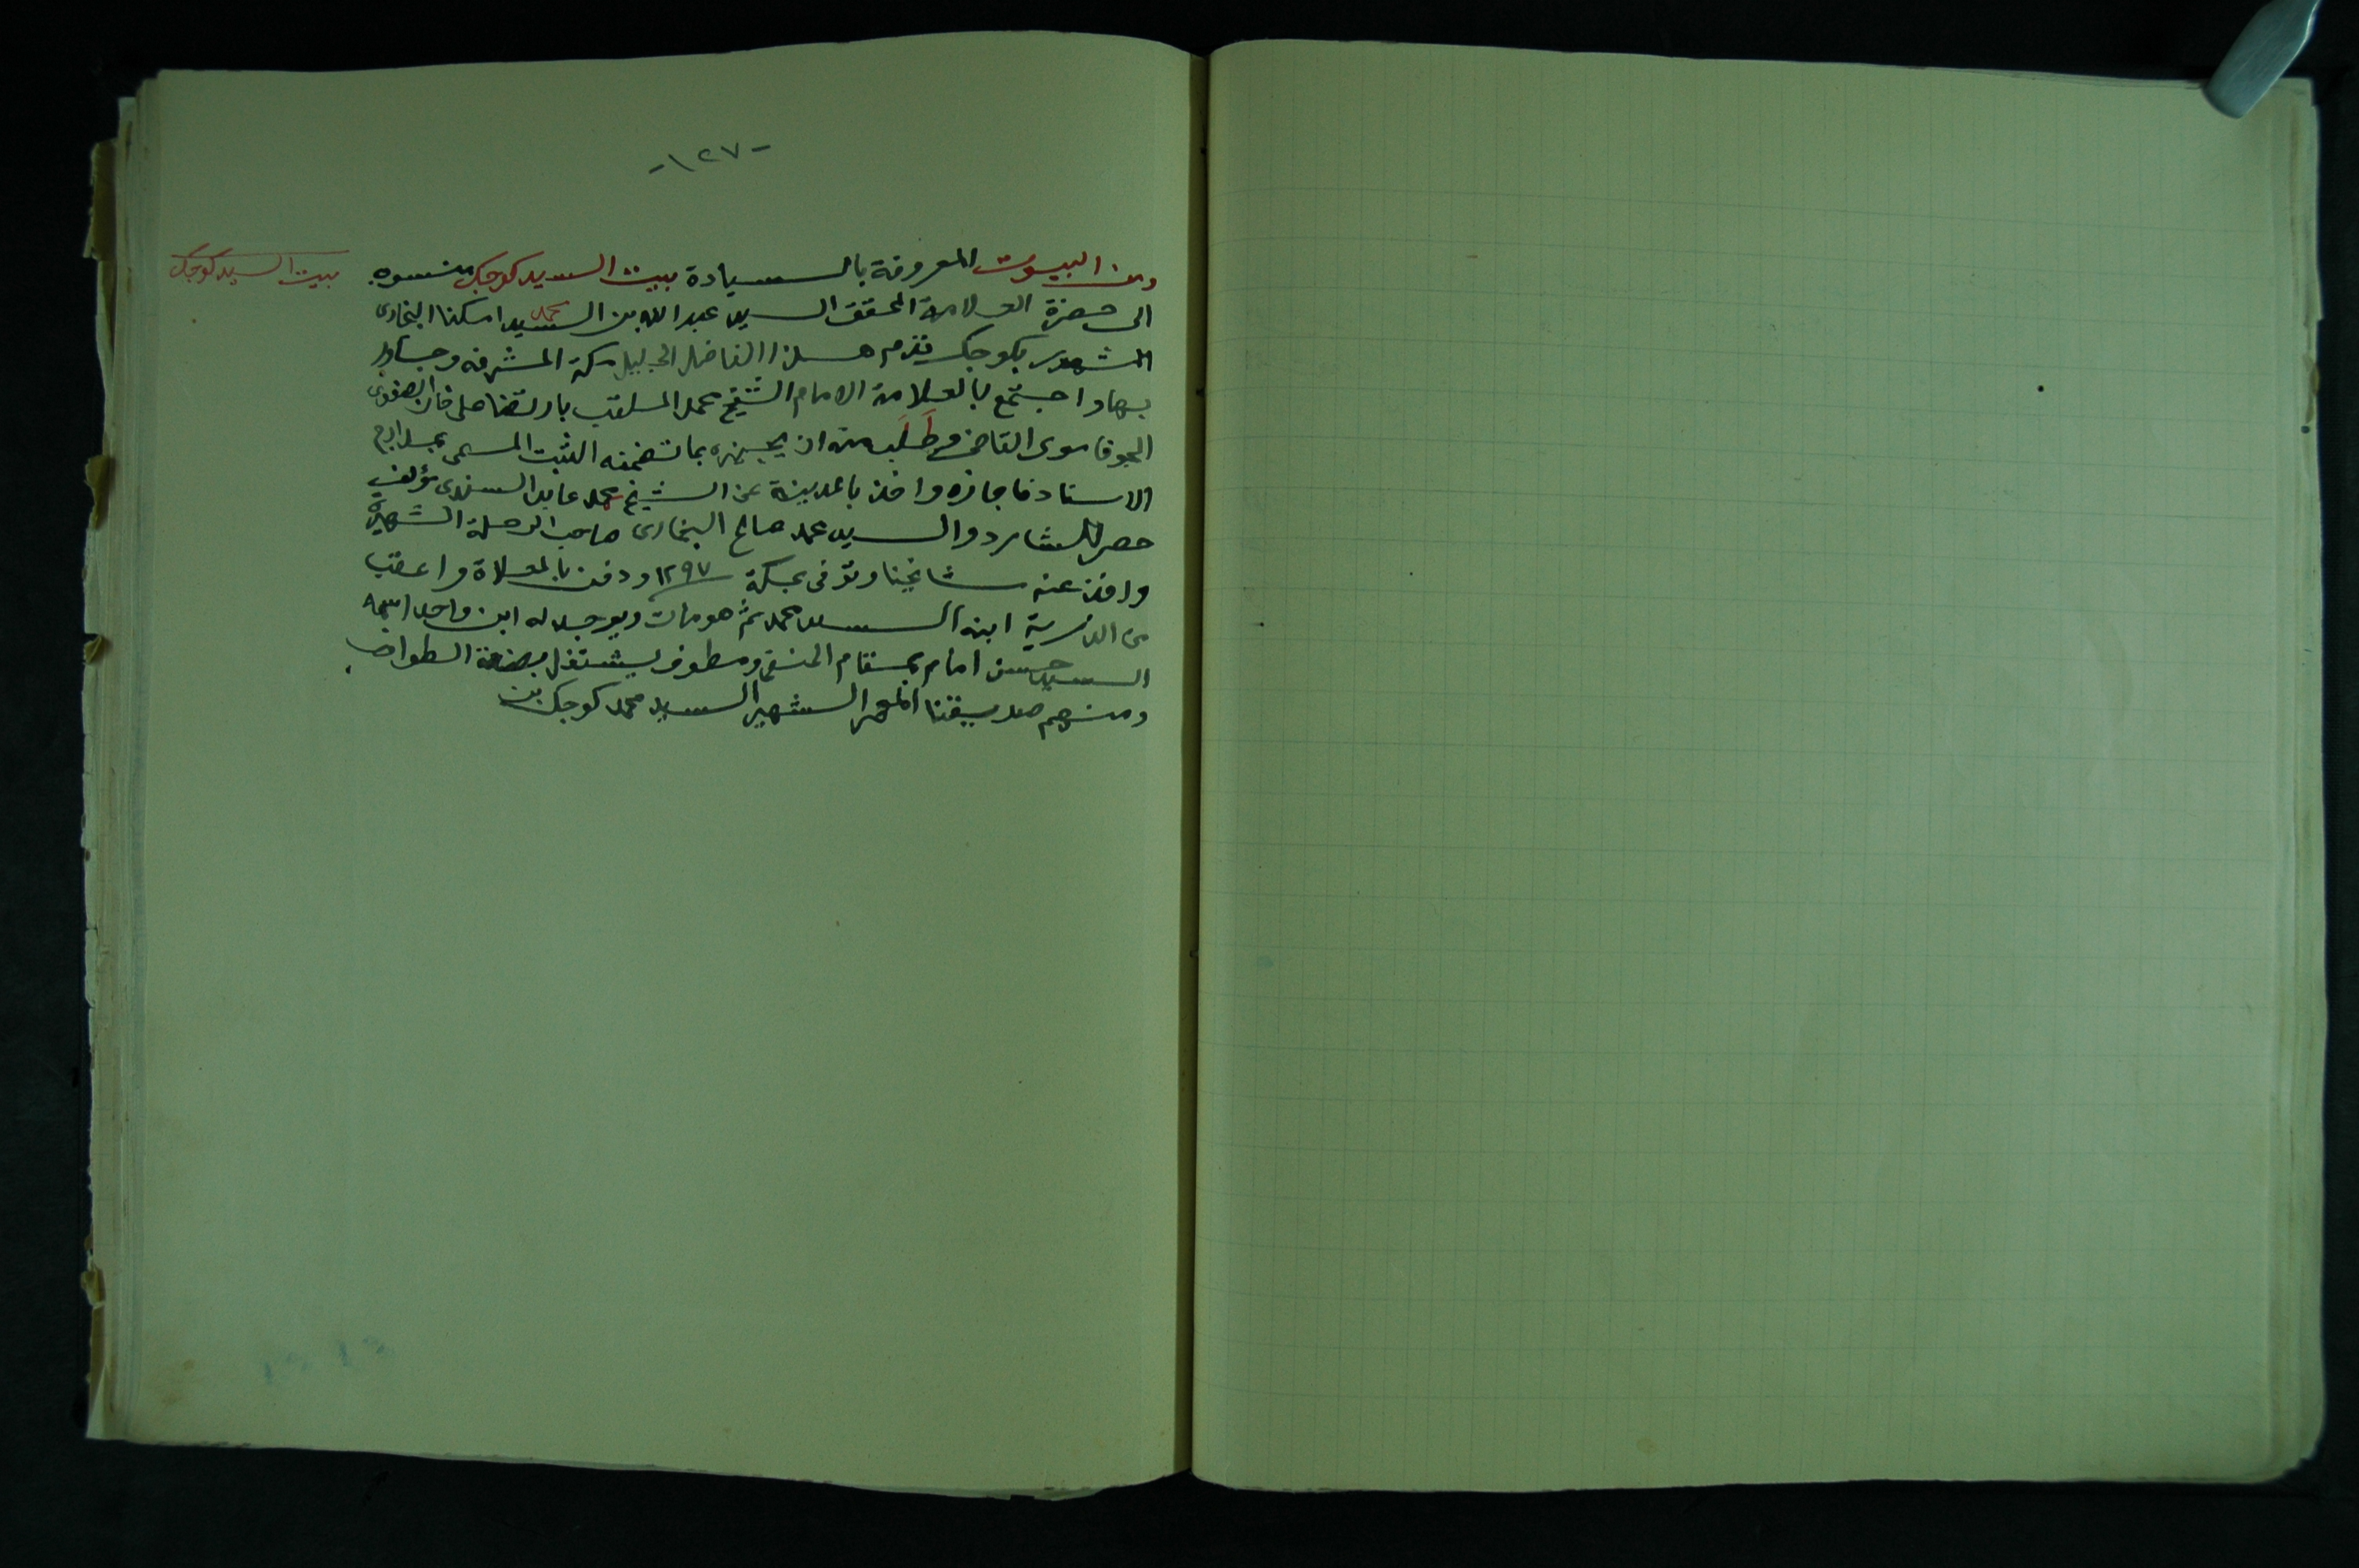 -١٢٧-
بيت السيد كوجك
ومن البيوت المعروفة بالسيادة بيت السيد كوجك منسوبه
الى حضرة العلامة المحقق السيد عبد الله بن السيد محمد اسكنا البخارى
المشهور بكوجك قدم هذا الفاضل الجليل مكة المشرفه وجاور
بها واجتمع بالعلامة الامام الشيخ محمد الملقب بارتضا على خان الصفوى
القاضى وطلب منه ان يجيزه بما تضمنه الثبت المسمى بمدارج
الاسناد فاجازه واخذ بالمدينة عن الشيخ محمد عابد السندى مؤلف
حصر الشارد والسيد محمد صالح البخارى صاحب الرحلة الشهيرة
واخذ عنه مشائخنا وتوفى بمكة ١٢٩٧ ودفن بالمعلاة واعقب
من الذرية ابنه السيد محمد ثم هو مات ويوجد له ابن واحد اسمه
السيد حسن امام بمقام الحنفى ومطوف يشتغل بصنعة الطوافه
ومنهم صديقنا المعمر الشهير السيد محمد كوجك بن